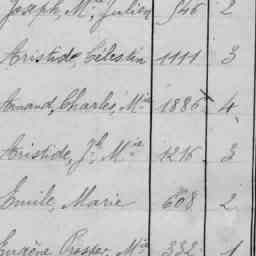 Joseph, Mie Julien 546 2
Aristide, Célestin 1111 3
Armand, Charles, Mie 1886 4
Aristide, Jh Mie 1216 3
Emile, Marie 608 2
Eugène Prosper, Mie 332 1